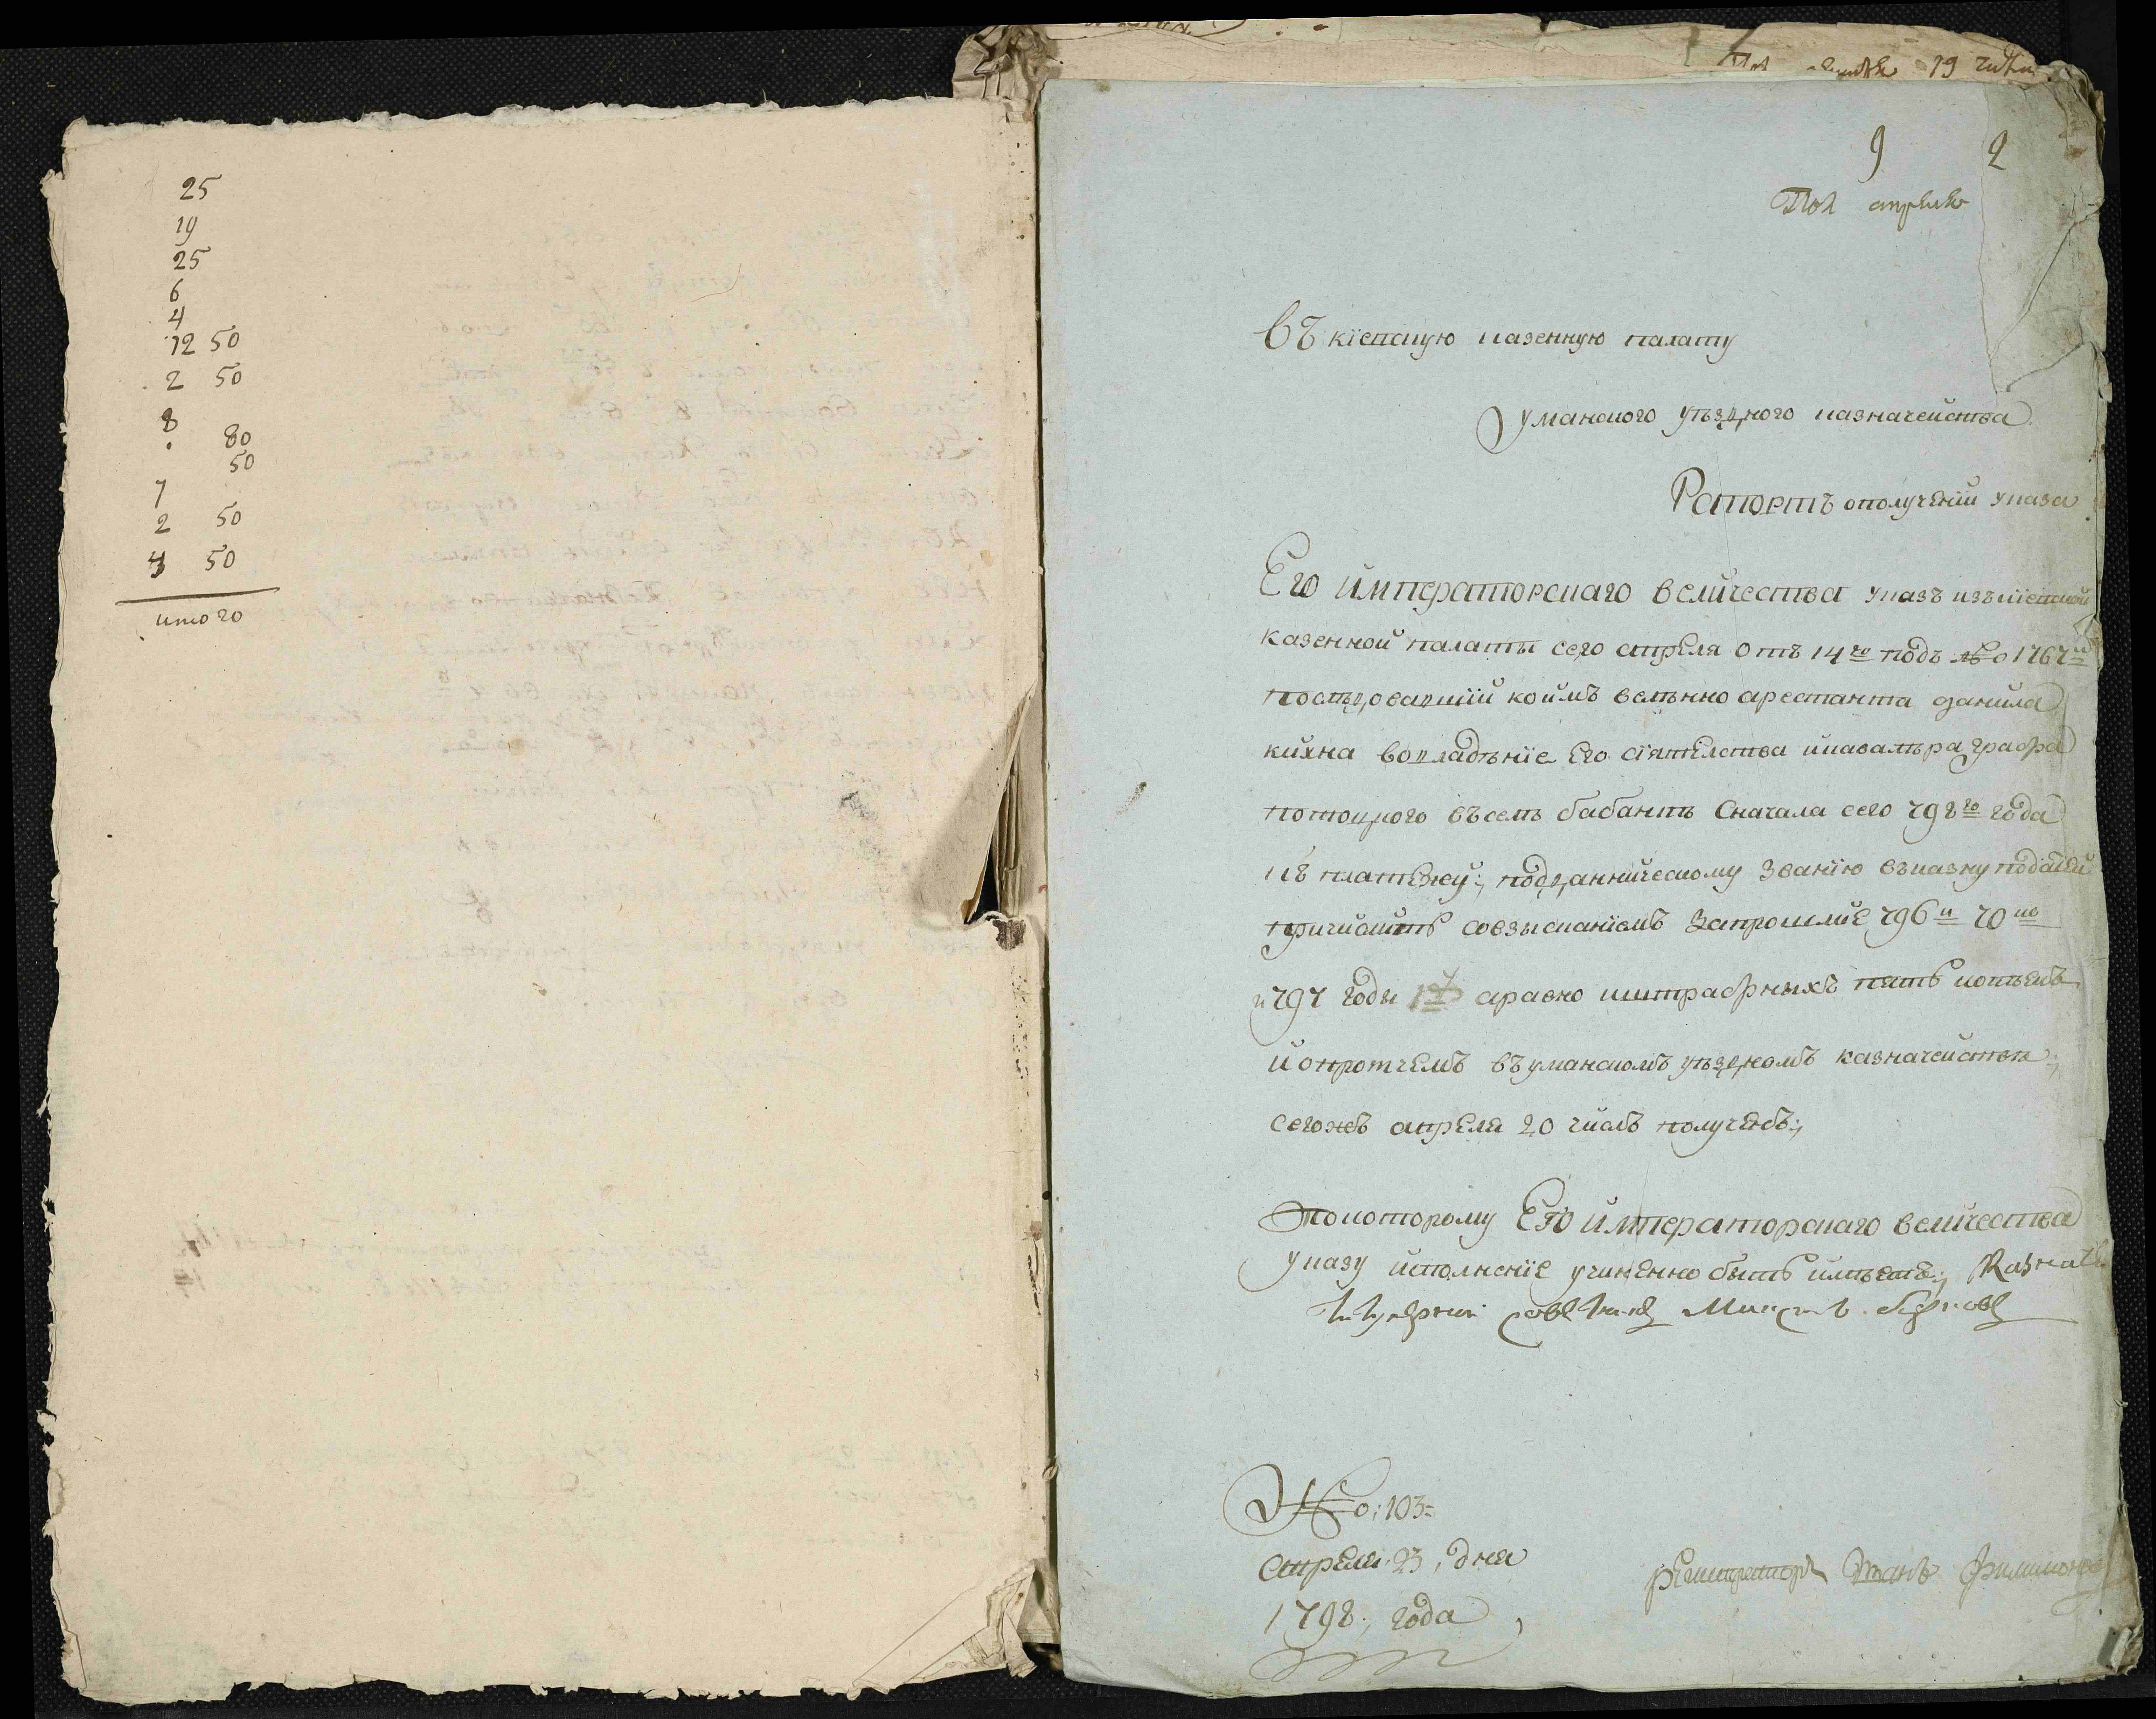 25
19
25
6
4
12 50
2 50
8
80
50
7
2 50
50
итого
19
9 2
Пол апреля
Въ кіевскую казенную палату
Уманского уѣздного казначейства
Рапортъ ополученіи указа
Его императорскаго величества указъ изъкіевской
казенной палаты сего апреля отъ 14го подъ №о 1767м
последовавшій коимъ велѣнно арестанта данила
кихна вовладѣніе Его сіятелства икавалѣра графа
потоцкого въселѣ бабанѣ Сначала сего 798го года
къ платежу; подданническому званію въказну податей
причислить совзысканіемъ Запрошлие 796й
и 797 годы аравно штрафныхъ пять копѣекъ
и опротчемъ въуманскомъ уѣздномъ казначействѣ;
сегожъ апреля 20 числъ полученъ;
Покоторому Его императорскаго величества
указу исполненіе учиненно быть имѣетъ;
№о: 103
апреля 23, дня
1798, года
регистраторъ